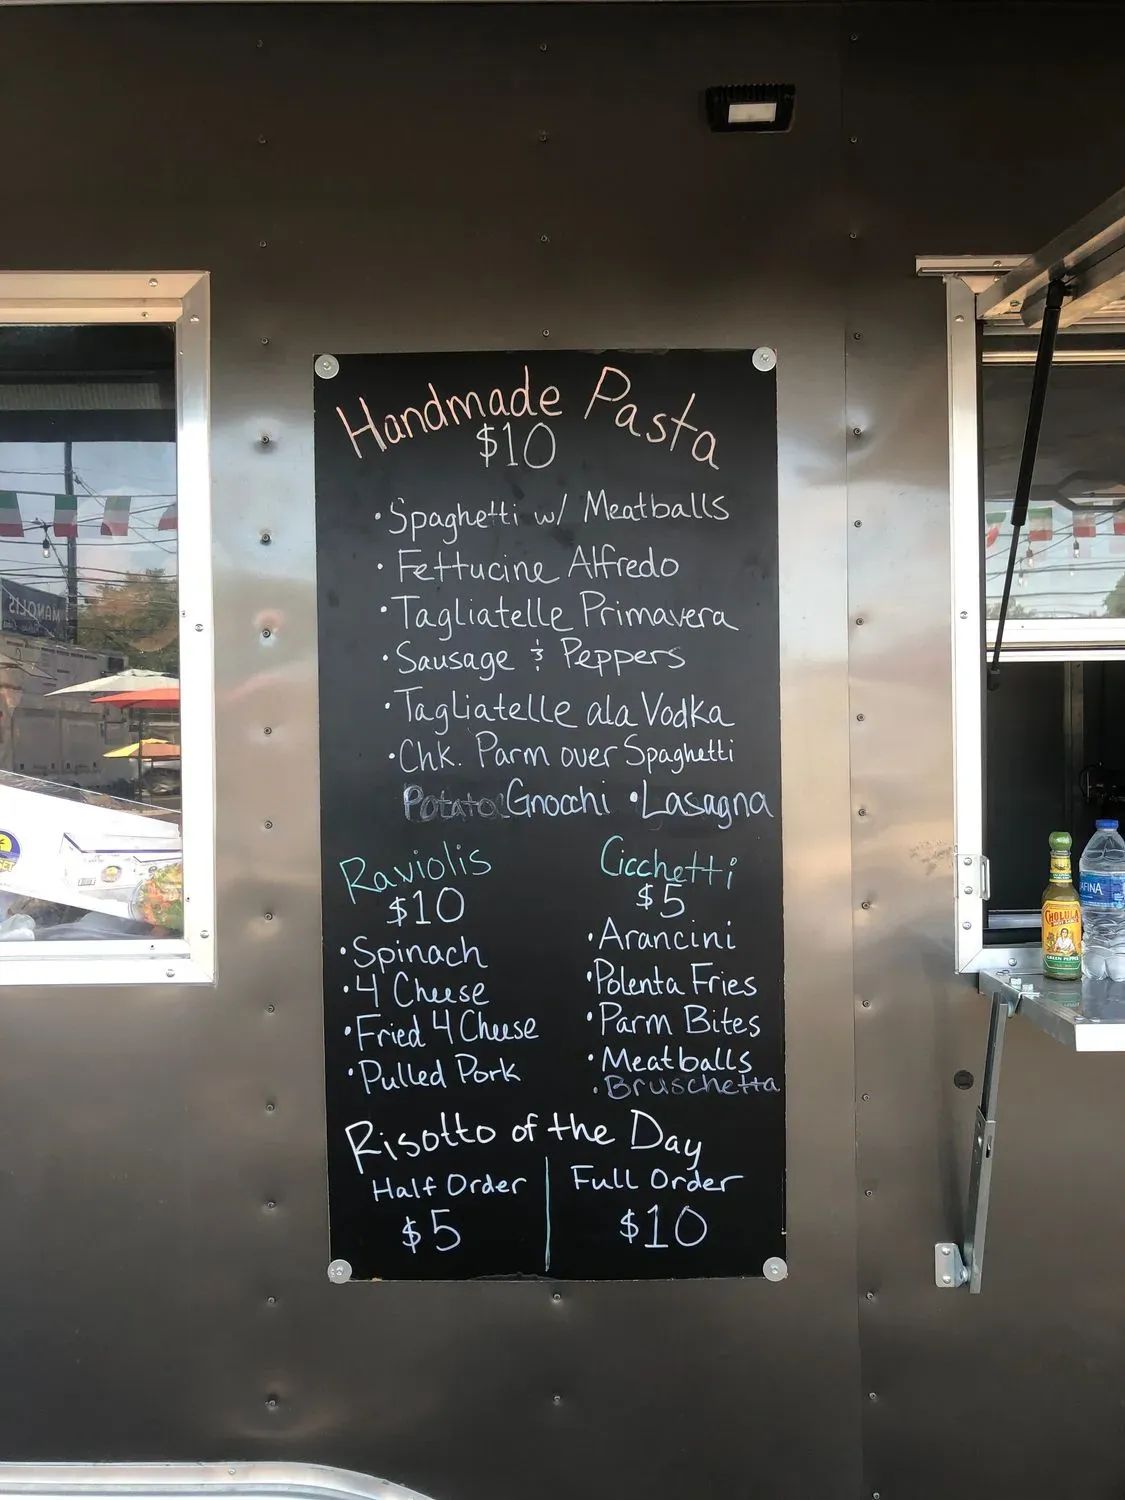 Handmade Pasta
$10
• Spaghetti w/ Meatballs
• Fettucine Alfredo
• Tagliatelle Primavera
• Sausage & Peppers
• Tagliatelle ala Vodka
• Chk. Parm over Spaghetti
Potato Gnocchi • Lasagna
Raviolis
$10
• Spinach
• 4 Cheese
• Fried 4 Cheese
• Pulled Pork
Cicchetti
$5
• Arancini
• Polenta Fries
• Parm Bites
• Meatballs
• Bruschetta
Risotto of the Day
Half Order
$5
Full Order
$10
MANOLIS
CHOLULA
GREEN PEPPER
AFINA